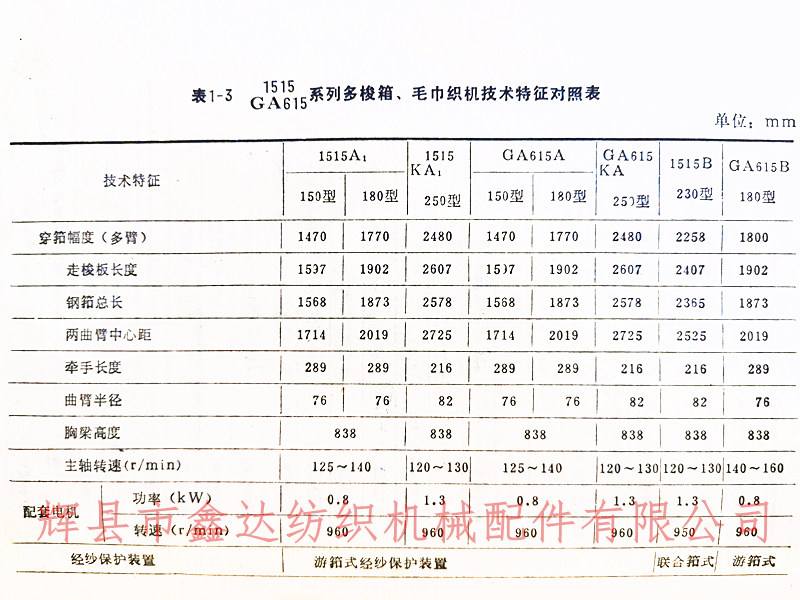 表1-3 1515 GA615 系列多梭箱、毛巾织机技术特征对照表
单位：mm
技术特征 1515A₁ 1515 KA₁ GA615A GA615 KA 1515B GA615B
150型 180型 250型 150型 180型 250型 230型 180型
穿筘幅度（多臂） 1470 1770 2480 1470 1770 2480 2258 1800
走梭板长度 1597 1902 2607 1597 1902 2607 2407 1902
钢筘总长 1568 1873 2578 1568 1873 2578 2365 1873
两曲臂中心距 1714 2019 2725 1714 2019 2725 2525 2019
牵手长度 289 289 216 289 289 216 216 289
曲臂半径 76 76 82 76 76 82 82 76
胸梁高度 838 838 838 838 838 838
主轴转速(r/min) 125～140 120～130 125～140 120～130 120～130 140～160
配套电机 功率（kW） 0.8 1.3 0.8 1.3 1.3 0.8
转速(r/min) 960 960 960 960 950 960
经纱保护装置 游筘式经纱保护装置 联合筘式 游筘式
辉县市鑫达纺织机械配件有限公司